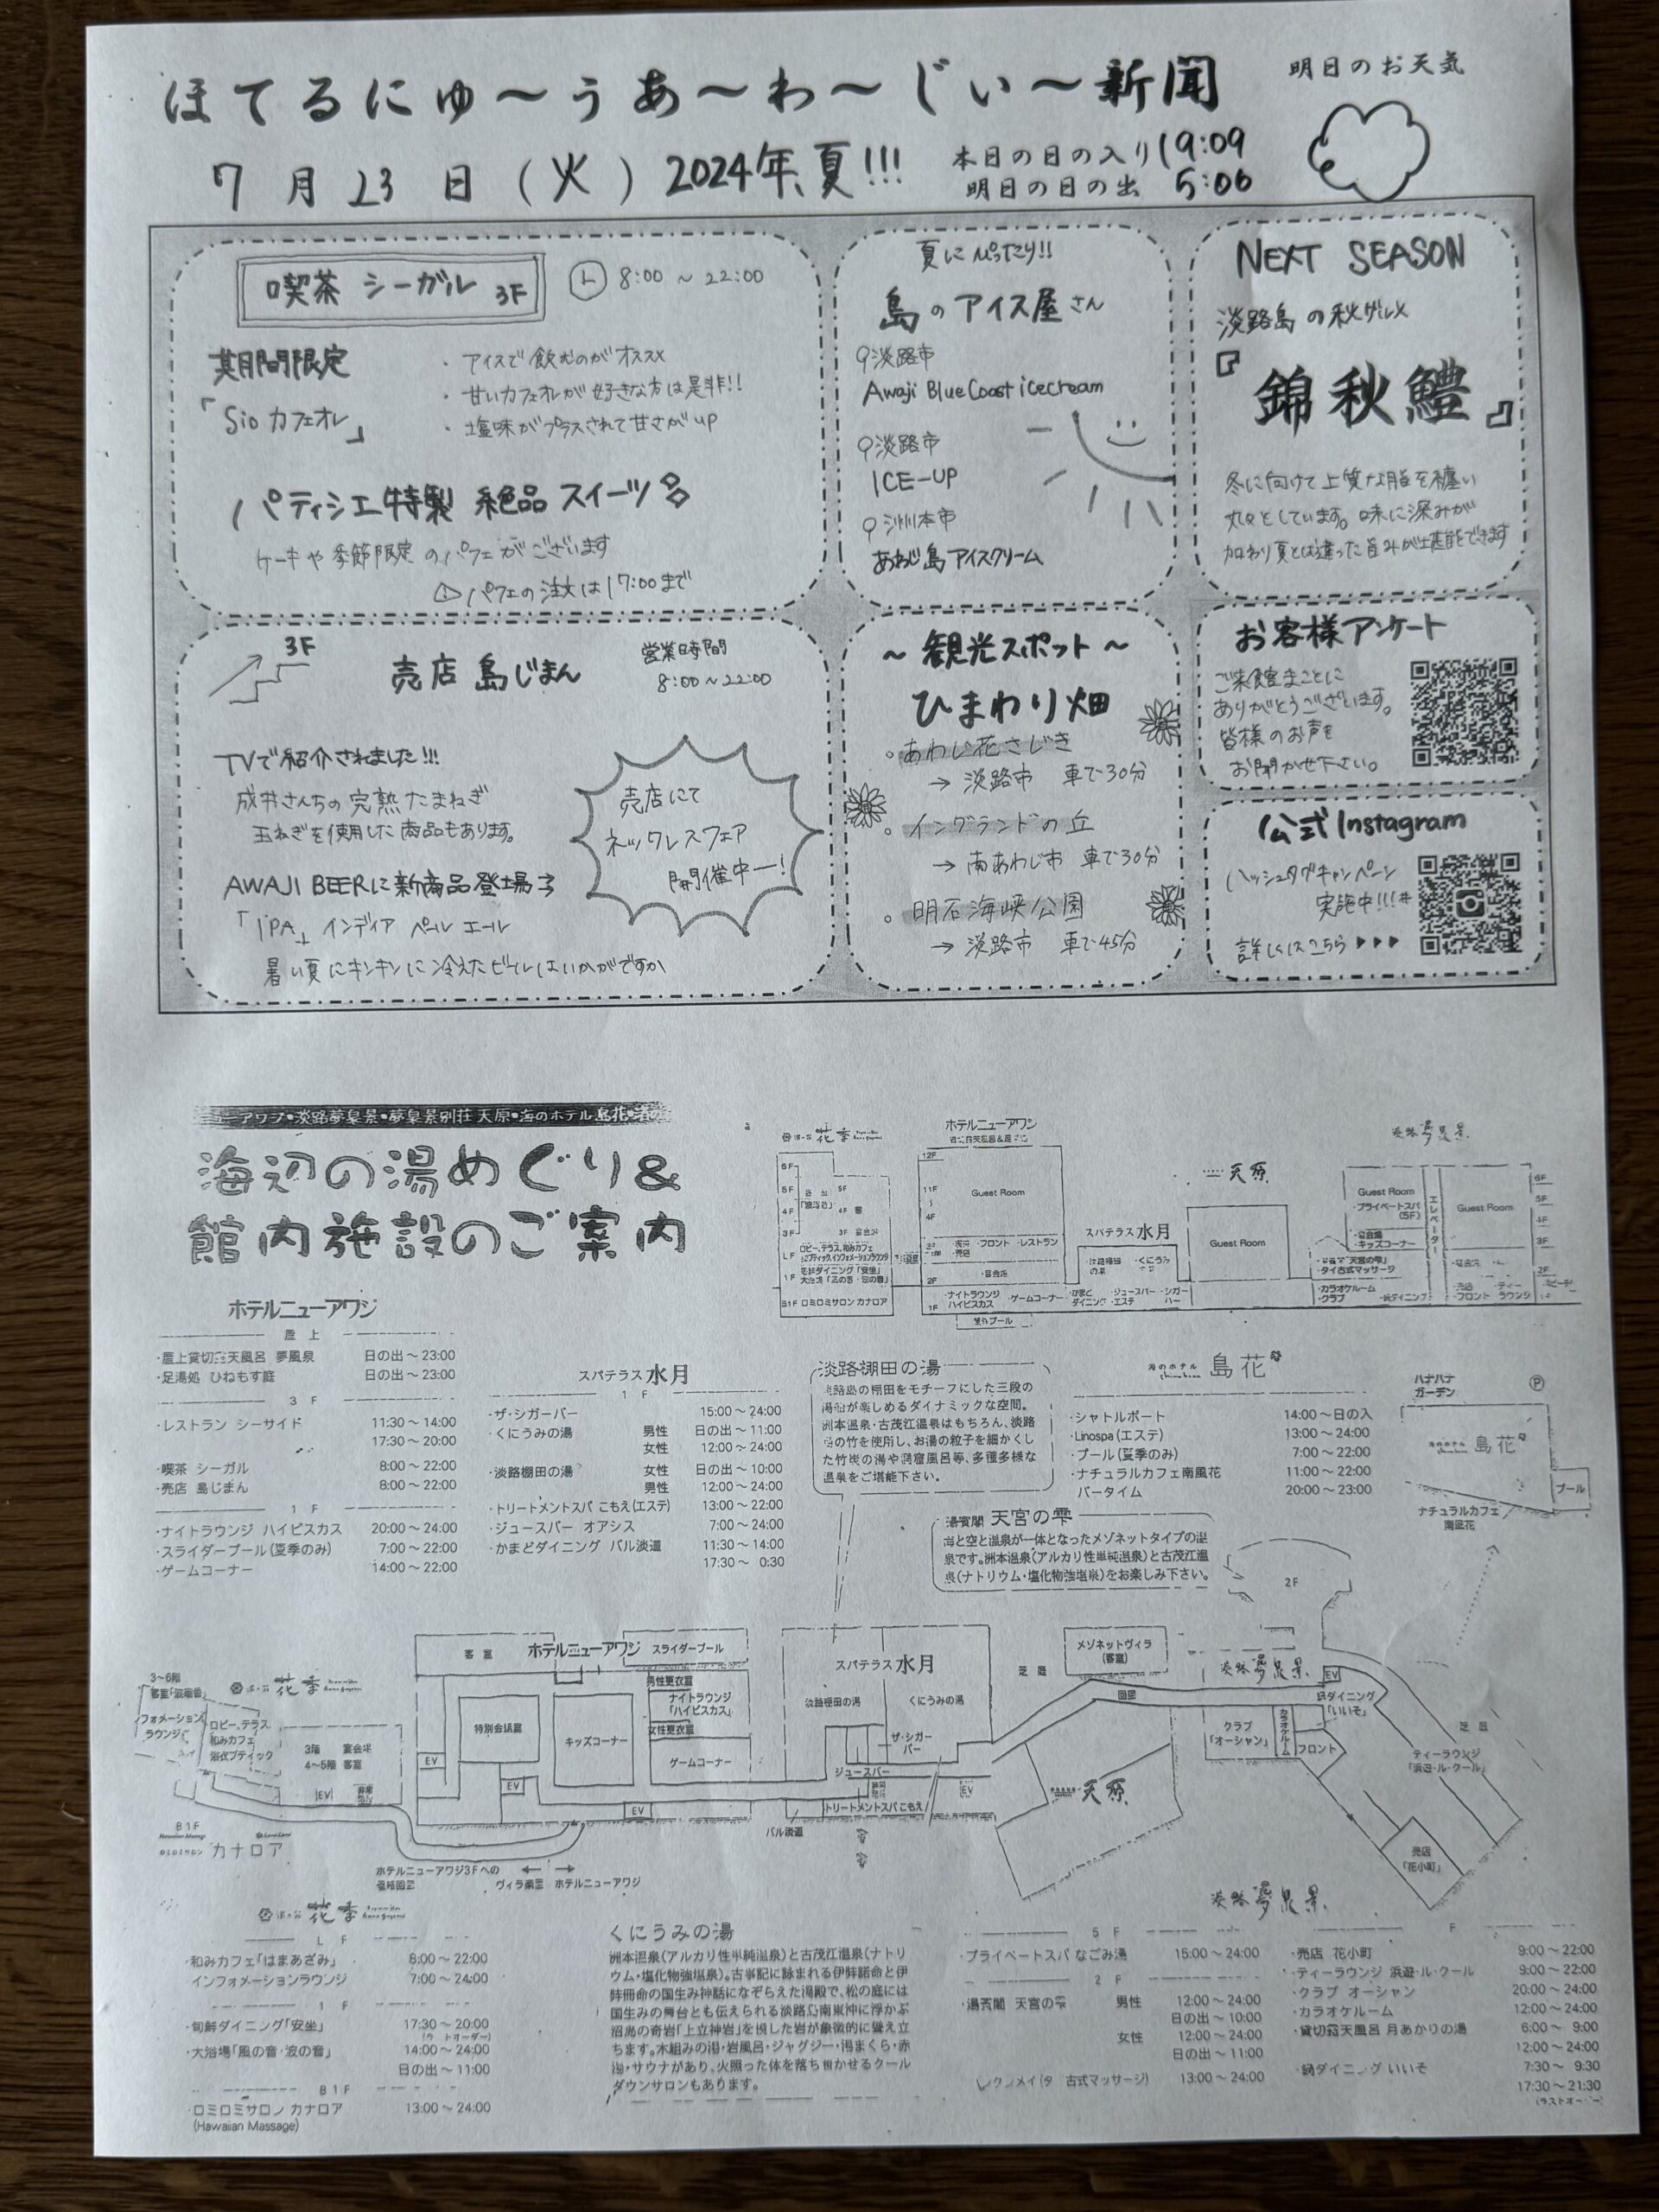 ほてるにゅ～うあ～わ～じぃ～新聞
明日のお天気
7月23日(火) 2024年夏!!!
本日の日の入り 19:09
明日の日の出 5:06
喫茶 シーガル 3F
8:00 ～ 22:00
期間限定
「Sio カフェオレ」
・アイスで飲むのがオススメ
・甘いカフェオレが好きな方は是非!!
・塩味がプラスされて甘さがup
パティシエ特製 絶品 スイーツ
ケーキや季節限定のパフェがございます
パフェの注文は17:00まで
夏にぴったり!!
島のアイス屋さん
淡路市
Awaji Blue Coast icecream
淡路市
ICE-UP
洲本市
あわじ島アイスクリーム
NEXT SEASON
淡路島の秋グルメ
『錦秋鱧』
冬に向けて上質な脂を纏い
丸々としています。味に深みが
加わり夏とは違った旨みが堪能できます
3F
売店 島じまん
営業時間
8:00～22:00
TVで紹介されました!!!
成井さんちの完熟たまねぎ
玉ねぎを使用した商品もあります。
AWAJI BEERに新商品登場
「IPA」インディア ペール エール
暑い夏にキンキンに冷えたビールはいかがですか
売店にて
ネックレスフェア
開催中ー!
～観光スポット～
ひまわり畑
。あわじ花さじき
→ 淡路市 車で30分
。イングランドの丘
→ 南あわじ市 車で30分
。明石海峡公園
→ 淡路市 車で45分
お客様アンケート
ご来館まことに
ありがとうございます。
皆様のお声を
お聞かせ下さい。
公式Instagram
ハッシュタグキャンペーン
実施中!!!#
詳しくはこちら▶▶▶
ニューアワジ・淡路夢泉景・夢泉景別荘 天原・海のホテル 島花・渚の
海辺の湯めぐり&
館内施設のご案内
花季
6F
5F
4F
3F
LF
1F
B1F
ロビー、テラス、和みカフェ
ロミロミサロン カナロア
ホテルニューアワジ
12F
11F
4F
Guest Room
・フロント・レストラン
・売店
2F
・宴会場
1F
・ナイトラウンジ
ハイビスカス
・ゲームコーナー
屋外プール
スパテラス水月
・淡路棚田の湯
・くにうみの湯
・かまどダイニング
・ジュースバー
・エステ
・シガーバー
天原
Guest Room
淡路夢泉景
Guest Room
・プライベートスパ
(5F)
・宴会場
・キッズコーナー
・タイ古式マッサージ
・カラオケルーム
・クラブ
エレベーター
Guest Room
6F
5F
4F
3F
2F
・フロント
ホテルニューアワジ
屋上
・屋上貸切露天風呂 夢風泉 日の出～23:00
・足湯処 ひねもす庭 日の出～23:00
3F
・レストラン シーサイド 11:30～14:00
17:30～20:00
・喫茶 シーガル 8:00～22:00
・売店 島じまん 8:00～22:00
1F
・ナイトラウンジ ハイビスカス 20:00～24:00
・スライダープール(夏季のみ) 7:00～22:00
・ゲームコーナー 14:00～22:00
スパテラス水月
1F
・ザ・シガーバー 15:00～24:00
・くにうみの湯 男性 日の出～11:00
女性 12:00～24:00
・淡路棚田の湯 女性 日の出～10:00
男性 12:00～24:00
・トリートメントスパ こもえ(エステ) 13:00～22:00
・ジュースバー オアシス 7:00～24:00
・かまどダイニング バル淡道 11:30～14:00
17:30～ 0:30
淡路棚田の湯
淡路島の棚田をモチーフにした三段の
湯船が楽しめるダイナミックな空間。
洲本温泉・古茂江温泉はもちろん、淡路
島の竹を使用し、お湯の粒子を細かくし
た竹炭の湯や洞窟風呂等、多種多様な
温泉をご堪能下さい。
湯賓閣 天宮の雫
海と空と温泉が一体となったメゾネットタイプの温
泉です。洲本温泉(アルカリ性単純温泉)と古茂江温
泉(ナトリウム・塩化物強塩泉)をお楽しみ下さい。
海のホテル 島花
・シャトルポート 14:00～日の入
・Linospa(エステ) 13:00～24:00
・プール(夏季のみ) 7:00～22:00
・ナチュラルカフェ南風花 11:00～22:00
バータイム 20:00～23:00
ハナハナ
ガーデン
P
海のホテル 島花
プール
ナチュラルカフェ
南風花
2F
3～6階
客室「渡風香」
花季
インフォメーション
ラウンジ
ロビー、テラス
和みカフェ
浴衣ブティック
3階 宴会場
4～6階 客室
EV
B1F
カナロア
客室
ホテルニューアワジ
スライダープール
特別会議室
キッズコーナー
男性更衣室
ナイトラウンジ
「ハイビスカス」
女性更衣室
ゲームコーナー
EV
EV
EV
ホテルニューアワジ3Fへの
連絡回廊
ヴィラ楽園
ホテルニューアワジ
スパテラス水月
淡路棚田の湯
くにうみの湯
ザ・シガーバー
ジュースバー
トリートメントスパ こもえ
バル淡道
EV
芝庭
メゾネットヴィラ
(客室)
回廊
天原
淡路夢泉景
EV
鍋ダイニング
「いいそ」
クラブ
「オーシャン」
カラオケルーム
フロント
芝庭
ティーラウンジ
「浜遊・ル・クール」
売店
「花小町」
花季
LF
・和みカフェ「はまあざみ」 8:00～22:00
インフォメーションラウンジ 7:00～24:00
1F
・旬鮮ダイニング「安坐」 17:30～20:00
・大浴場「風の音・波の音」 14:00～24:00
日の出～11:00
B1F
・ロミロミサロン カナロア 13:00～24:00
(Hawaiian Massage)
くにうみの湯
洲本温泉(アルカリ性単純温泉)と古茂江温泉(ナトリ
ウム・塩化物強塩泉)。古事記に詠まれる伊弉諾命と伊
弉冊命の国生み神話になぞらえた湯殿で、松の庭には
国生みの舞台とも伝えられる淡路島南東沖に浮かぶ
沼島の奇岩「上立神岩」を模した岩が象徴的に聳え立
ちます。木組みの湯・岩風呂・ジャグジー・湯まくら・赤
湯・サウナがあり、火照った体を落ち着かせるクール
ダウンサロンもあります。
淡路夢泉景
5F
・プライベートスパ なごみ湯 15:00～24:00
2F
・湯賓閣 天宮の雫 男性 12:00～24:00
日の出～10:00
女性 12:00～24:00
日の出～11:00
古式マッサージ) 13:00～24:00
F
・売店 花小町 9:00～22:00
・ティーラウンジ 浜遊・ル・クール 9:00～22:00
・クラブ オーシャン 20:00～24:00
・カラオケルーム 12:00～24:00
・貸切露天風呂 月あかりの湯 6:00～ 9:00
12:00～24:00
・鍋ダイニング いいそ 7:30～ 9:30
17:30～21:30
(ラストオーダー)